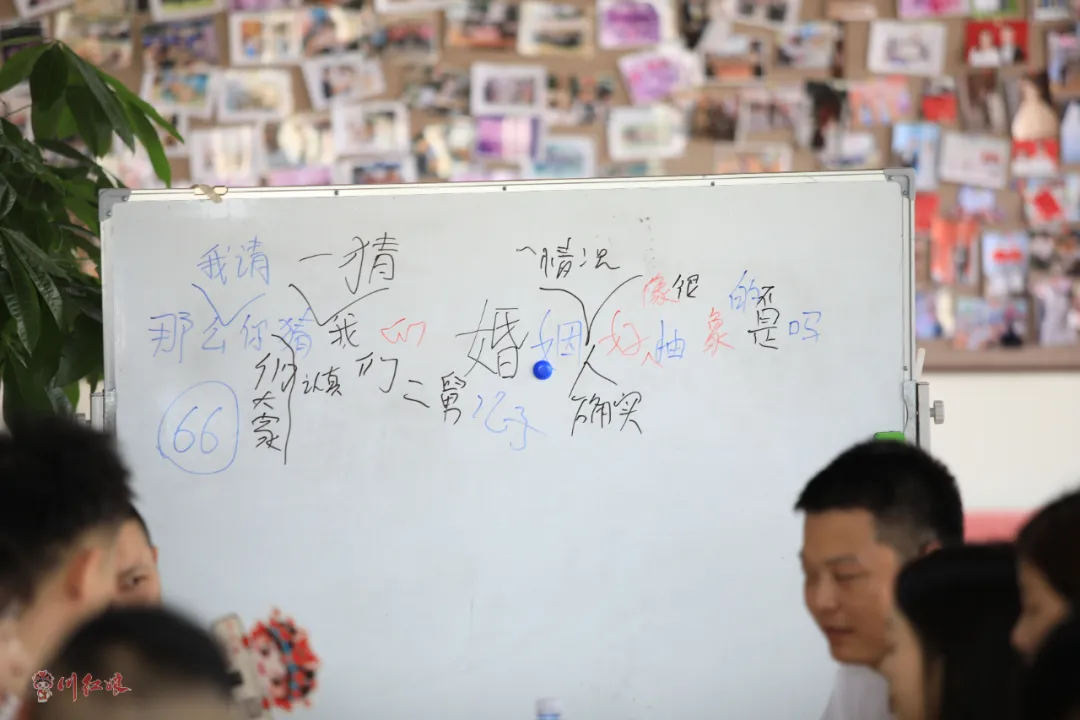 我请 一猜 情况
像很 的 不是
那么你猜我们 婚姻好抽象 吗
们 认真 们 二舅 公子 确实
大家
66
川红娘